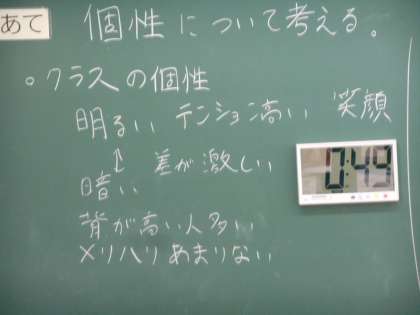 あて
個性について考える。
○クラスの個性
明るい テンション高い 笑顔
↕ 差が激しい
0:49
暗い
背が高い人多い
メリハリあまりない